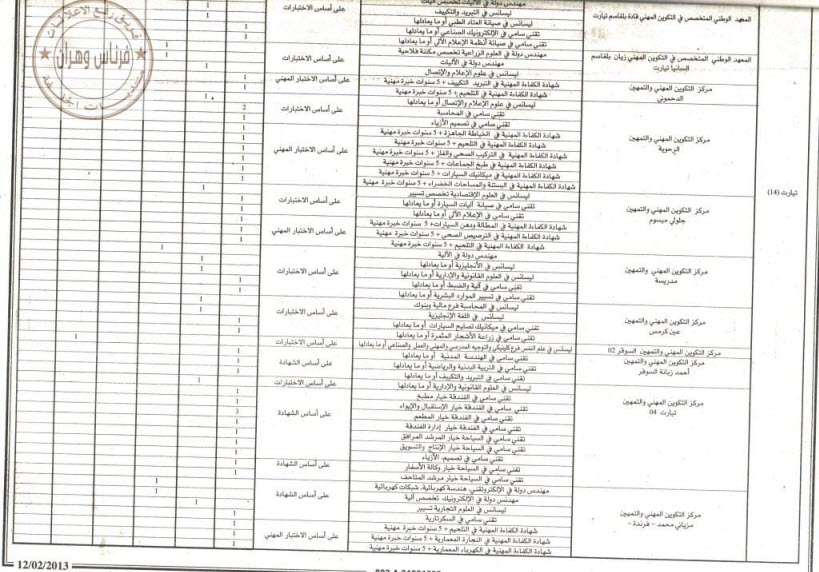 مهندس دولة في الآليات تخصص آليات
المعهد الوطني المتخصص في التكوين المهني قادة بلقاسم تيارت
ليسانس في التبريد والتكييف
على أساس الاختبارات
ليسانس في صيانة العتاد الطبي أو ما يعادلها
تقني سامي في الإلكترونيك الصناعي أو ما يعادلها
تقني سامي في صيانة أنظمة الإعلام الآلي أو ما يعادلها
المعهد الوطني المتخصص في التكوين المهني زيان بلقاسم
السبانيا تيارت
مهندس دولة في العلوم الزراعية تخصص مكننة فلاحية
مهندس دولة في الآليات
على أساس الاختبارات
ليسانس في علوم الإعلام والإتصال
مركز التكوين المهني والتمهين
الدحموني
شهادة الكفاءة المهنية في التبريد التكييف + 5 سنوات خبرة مهنية
شهادة الكفاءة المهنية في التلحيم + 5 سنوات خبرة مهنية
على أساس الاختبار المهني
ليسانس في علوم الإعلام والإتصال أو ما يعادلها 2
تقني سامي في المحاسبة 1
على أساس الاختبارات
تقني سامي في تصميم الأزياء 1
مركز التكوين المهني والتمهين
الرحوية
شهادة الكفاءة المهنية في الخياطة الجاهزة + 5 سنوات خبرة مهنية 1
شهادة الكفاءة المهنية في التلحيم + 5 سنوات خبرة مهنية 1
شهادة الكفاءة المهنية في التركيب الصحي والغاز + 5 سنوات خبرة مهنية 1
على أساس الاختبار المهني
شهادة الكفاءة المهنية في طبخ الجماعات + 5 سنوات خبرة مهنية 1
شهادة الكفاءة المهنية في ميكانيك السيارات + 5 سنوات خبرة مهنية 1
شهادة الكفاءة المهنية في البستنة والمساحات الخضراء + 5 سنوات خبرة مهنية 1
تيارت (14)
مركز التكوين المهني والتمهين
جلولي ميسوم
ليسانس في العلوم الإقتصادية تخصص تسيير 1
تقني سامي في صيانة آليات السيارة أو ما يعادلها 1
على أساس الاختبارات
تقني سامي في الإعلام الآلي أو ما يعادلها 1
شهادة الكفاءة المهنية في المطالة ودهن السيارات + 5 سنوات خبرة مهنية 1
شهادة الكفاءة المهنية في الترصيص الصحي + 5 سنوات خبرة مهنية 1
على أساس الاختبار المهني
شهادة الكفاءة المهنية في التلحيم + 5 سنوات خبرة مهنية
مركز التكوين المهني والتمهين
مدريسة
مهندس دولة في الآلية 1
ليسانس في الأنجليزية أو ما يعادلها 1
ليسانس في العلوم القانونية والإدارية أو ما يعادلها 1
على أساس الاختبارات
تقني سامي في آلية والضبط أو ما يعادلها 1
تقني سامي في تسيير الموارد البشرية أو ما يعادلها 1
مركز التكوين المهني والتمهين
عين كرمس
ليسانس في المحاسبة فرع مالية وبنوك 1
ليسانس في اللغة الإنجليزية 1
على أساس الاختبارات
تقني سامي في ميكانيك تصليح السيارات أو ما يعادلها 1
تقني سامي في زراعة الأشجار المثمرة أو ما يعادلها 1
مركز التكوين المهني والتمهين السوقر 02
ليسانس في علم النفس فرع كلينيكي والتوجيه المدرسي والمهني والعمل والصناعي أو ما يعادلها 1
على أساس الاختبارات
مركز التكوين المهني والتمهين
أحمد زبانة السوقر
تقني سامي في الهندسة المدنية أو ما يعادلها 1
تقني سامي في التربية البدنية والرياضية أو ما يعادلها 1
على أساس الشهادة
تقني سامي في التبريد والتكييف أو ما يعادلها 1
مركز التكوين المهني والتمهين
تيارت 04
ليسانس في العلوم القانونية والإدارية أو ما يعادلها 1
على أساس الاختبارات
تقني سامي في الفندقة خيار مطبخ 1
تقني سامي في الفندقة خيار الإستقبال والإيواء 3
تقني سامي في الفندقة خيار المطعم 1
على أساس الشهادة
تقني سامي في الفندقة خيار إدارة الفندقة 1
تقني سامي في السياحة خيار المرشد المرافق 1
تقني سامي في السياحة خيار الإنتاج والتسويق 1
تقني سامي في تصميم الأزياء 1
تقني سامي في السياحة خيار وكالة الأسفار 1
على أساس الشهادة
تقني سامي في السياحة خيار مرشد المتاحف 1
مركز التكوين المهني والتمهين
مزياني محمد - فرندة -
مهندس دولة في الإلكتروتقني، هندسة كهربائية، شبكات كهربائية 1
مهندس دولة في الإلكترونيك تخصص آلية 1
على أساس الشهادة
ليسانس في العلوم التجارية تسيير 1
تقني سامي في السكرتارية 1
شهادة الكفاءة المهنية في التلحيم + 5 سنوات خبرة مهنية 1
شهادة الكفاءة المهنية في النجارة المعمارية + 5 سنوات خبرة مهنية 1
على أساس الاختبار المهني
شهادة الكفاءة المهنية في الكهرباء المعمارية + 5 سنوات خبرة مهنية 1
فريق رفع الاعلانات
فرناس وهران
منتديات الجلفة
12/02/2013